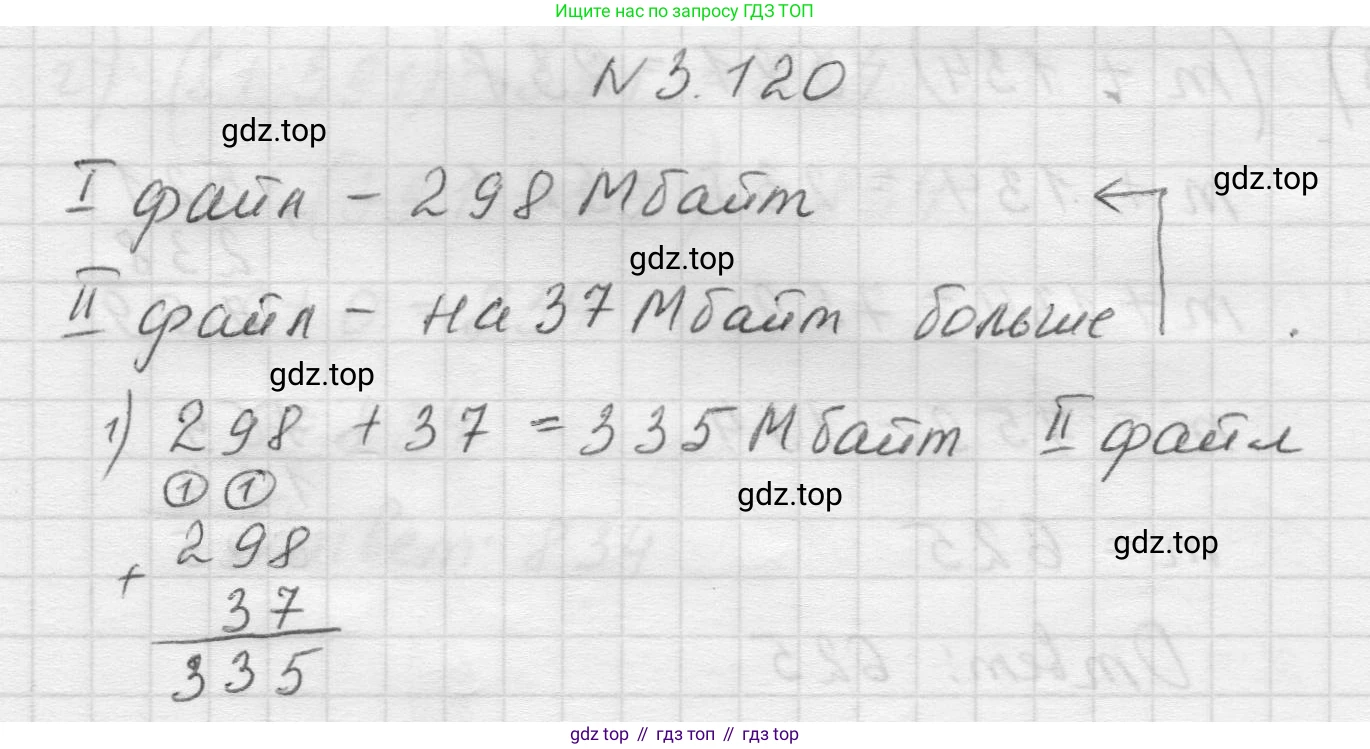 Ищите нас по запросу ГДЗ ТОП
N 3.120
gdz.top
I файл - 298 Мбайт
gdz.top
gdz.top
II файл - на 37 Мбайт больше .
gdz.top
1) 298 + 37 = 335 Мбайт II файл
gdz.top
1 1
298
gdz.top
+
37
335
gdz top // гдз топ // гдз top